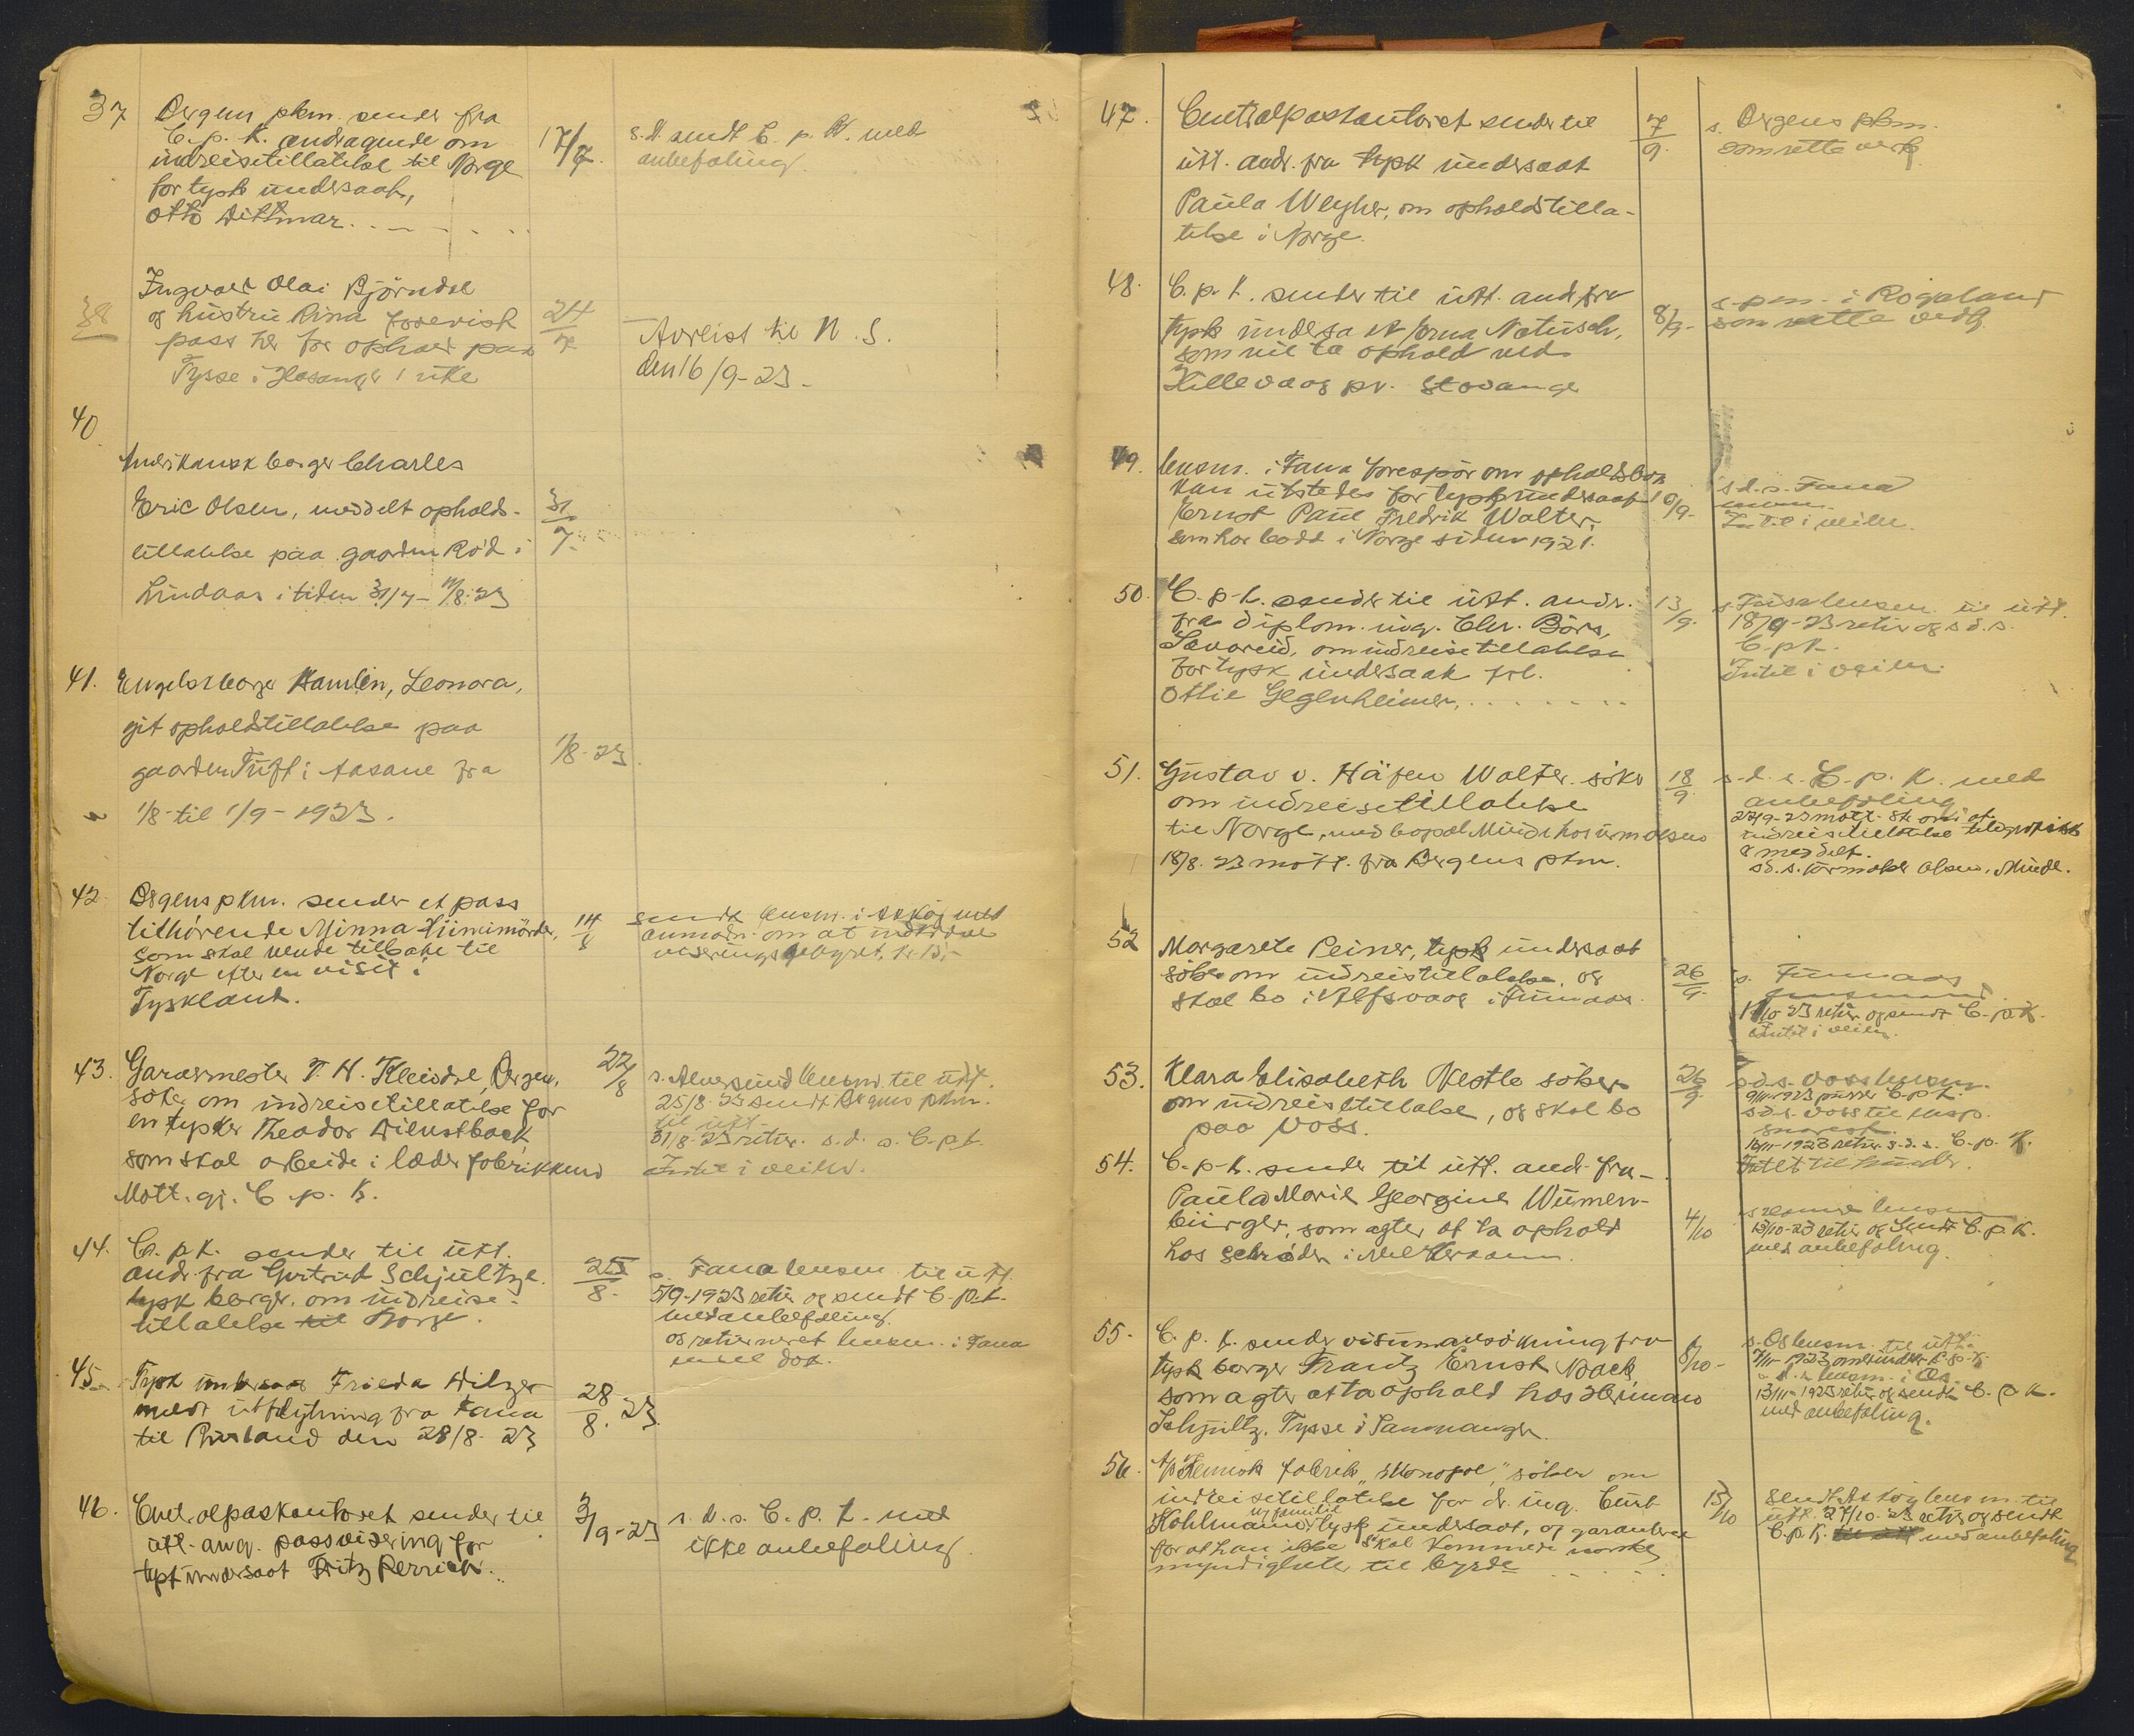 37 Bergens pkm. sender fra
C.p.k. andragende om
indreisetillatelse til Norge
for tysk undersaat,
Otto Dittmar.
17/7.
s.d. sendt C. p. K. med
anbefaling.
38
Ingvald Olai Bjørndal
og hustru Rina forevist
pass her for ophold paa
Tysse i Hosanger 1 uke
24/7
Avreist til N. S.
den 16/9-23.
40
Amerikansk borger Charles
Eric Olsen, meddelt opholds-
tillatelse paa gaarden Rød i
Lindaas i tiden 31/7 - 11/8.23
31/7.
41. Engelsk borger Hamlin, Leonora,
git opholdstillatelse paa
gaarden Tuft i Aasane fra
1/8 til 1/9 - 1923.
1/8-23.
42. Bergens pkm. sender et pass
tilhørende Minna
som skal vende tilbake til
Norge efter en visit i
Tyskland.
14/8
sendt lensm. i Askøy med
anmodn. om at inddrive
viseringsgebyret, kr.
43. Garvermester T. H. Kleisdal Bergen,
søker om indreisetillatelse for
en tysker Theodor Dienstback
som skal arbeide i læderfabrikken
Mott. gj. C. p. K.
22/8
s. Alversund lensm. til utt.
25/8-23 sendt Bergens pkm.
til utt.
31/8-23 retur. s. d. s. C.p.k.
Intet i veien.
44. C. p. k. sender til utt.
andr. fra Gertrud Schjultze
tysk borger. om indreise-
tillatelse til Norge.
25/8.
s. Fana lensm til utt.
5/9-1923 retur og sendt C.p.k.
med anbefaling.
og returneret lensm. i Fana
45. Tysk undersaat Frieda Dilzer
meldt utflytning fra Fana
til Rusland den 28/8. 23
28/8. 23
46. Centralpaskontoret sender til
utt. ang. passvisering for
tysk undersaat Fritz Perrich.
3/9-23
s. d. s. C. p. k. med
ikke anbefaling.
47. Centralpaskontoret sender til
utt. andr. fra tysk undersaat
Paula Weyher, om opholdstilla-
telse i Norge.
7/9.
s. Bergens pkm.
som rette vedk.
48. C. p. k. sender til utt. and. fra
tysk undersaat Erna Natusch,
som vil ta ophold ved
Hillevaag pr. Stavanger
8/9-
s. pm. i Rogaland
som rette vedk
49. lensm. i Fana forespør om opholdsbok
kan utstedes for tysk undersaat
Ernst Paul Fredrik Walter,
som har bodd i Norge siden 1921.
10/9-
s. d. s. Fana
lensm.
Intet i veien.
50. C. p. k. sender til utt. andr.
fra diplom. ing. Chr. Börs,
Sævareid, om indreisetillatelse
for tysk undersaat frk.
Ottie Gegenheimer,
13/9.
s. Fusa lensm. til utt.
18/9-23 retur og s. d. s.
C.p.k.
Intet i veien.
51. Gustav v. Häfen Walter søker
om indreisetillatelse
til Norge, med bopæl Minde hos urm. Olsen
18/8. 23 mott. fra Bergens pkm.
18/9.
s. d. s. C. p. K. med
anbefaling
27/9-23 mott. sk. om at
indreisetillatelse telegrafisk
er meddelt.
s.d.s. urmaker Olsen, Minde.
52 Margarete Peiner, tysk undersaat
søker om indreistillatelse, og
skal bo i Alfsvaag i Finnaas.
26/9.
s. Finnaas
lensmand
11/10 23 retur og sendt C. p. k.
Intet i veien.
53. Klara Elisabeth Nestle søker
om indreisetillatelse, og skal bo
paa Voss.
26/9
s.d.s. Voss lensm.
9/11-1923 purrer C.p.k.
s.d.s. Voss til eksp.
snarest.
16/11-1923 retur s.d.s. C. p. K.
Intet til hinder.
54. C. p. k. sender til utt. andr. fra
Paula Marie Georgine Wumen-
bürger, som agter at ta ophold
hos Schrøder i
4/10
13/10-23 retur og sendt C. p. k.
med anbefaling.
55. C. p. k. sender visumansøkning fra
tysk borger Frantz Ernst Noack
som agter at ta ophold hos Hermann
Schjultz. Tysse i Samnanger.
8/10-
s. Os lensm. til utt.
7/11-1923
s. d. s. lensm. i Os.
13/11-1923 retur og sendt C. p. k.
med anbefaling.
56. A/s Kemisk fabrik "Monopol", søker om
indreisetillatelse for dr. ing. Curt
og familie
Kohlmann tysk undersaat, og garanterer
for at han ikke skal komme de norske
myndigheter til byrde
15/10
sendt Askøy lensm. til
utt. 27/10-23 retur og sendt
C.p.k. med anbefaling